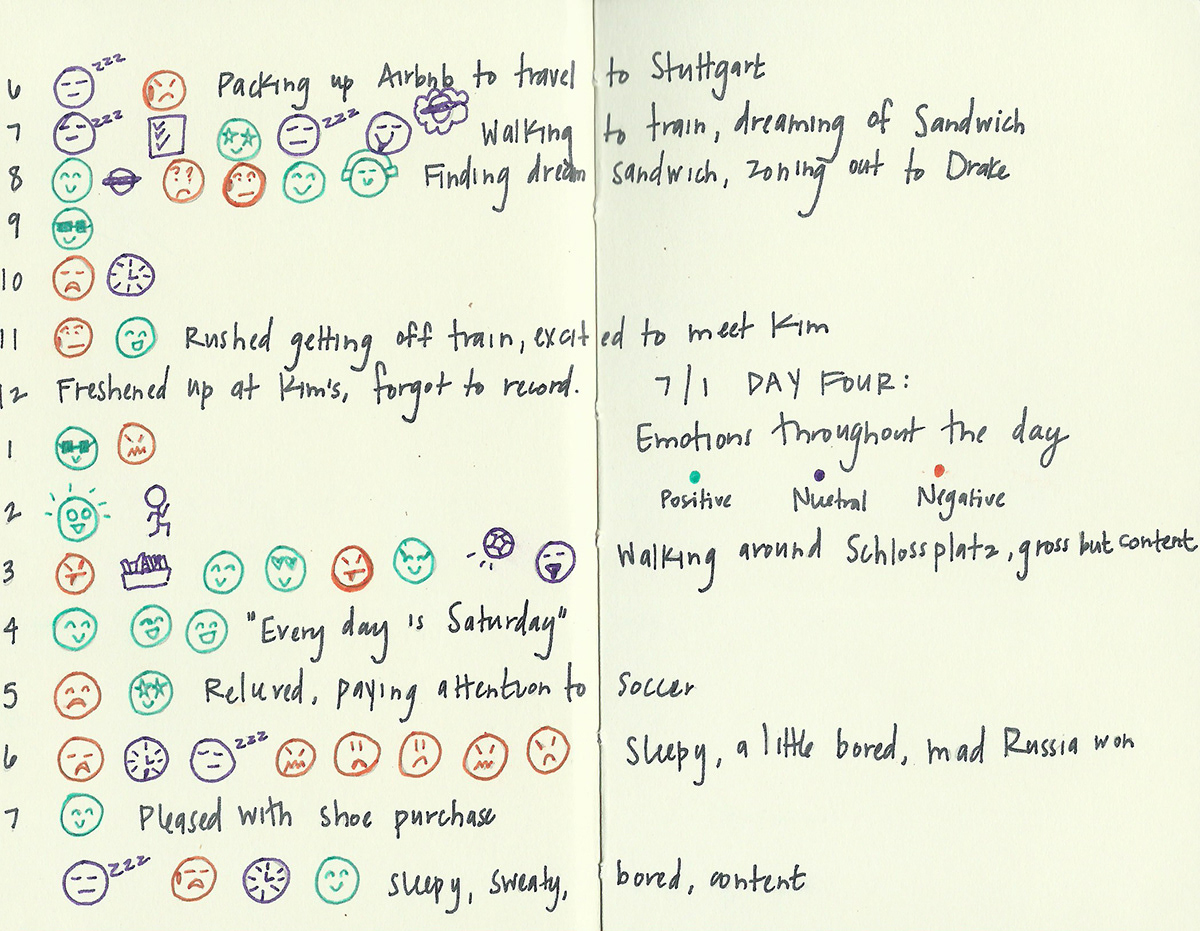 6 zzz Packing up Airbnb to travel to Stuttgart
7 zzz zzz Walking to train, dreaming of Sandwich
8 ?? Finding dream sandwich, zoning out to Drake
9
10
11 Rushed getting off train, excited to meet Kim
12 Freshened up at Kim's, forgot to record.
7/1 DAY FOUR:
1
Emotions throughout the day
Positive Nuetral Negative
2
3 Walking around Schlossplatz, gross but content
4 "Every day is Saturday"
5 Relieved, paying attention to soccer
6 zzz Sleepy, a little bored, mad Russia won
7 Pleased with shoe purchase
zzz sleepy, sweaty, bored, content